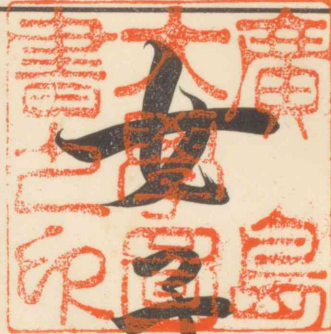 廣島
大學圖
書之印
女